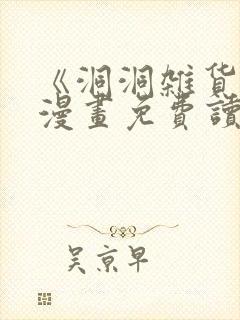 《洞洞雑货
漫畫免費讀
吴京早